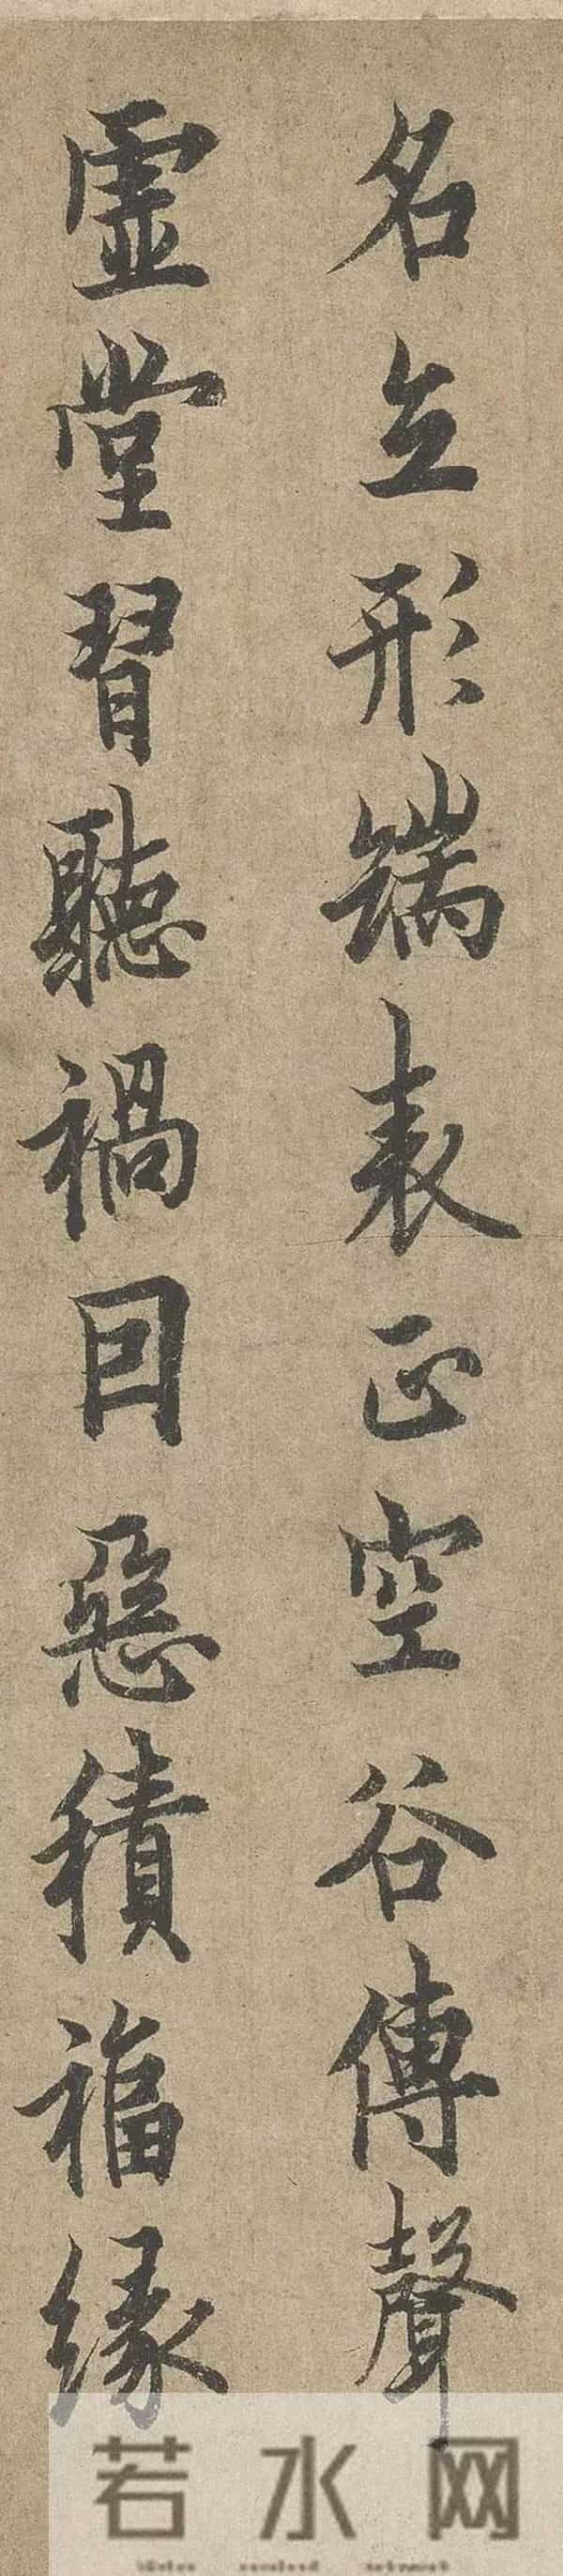 名立形端表正空谷傳聲
虛堂習聽禍因惡積福緣
若水网